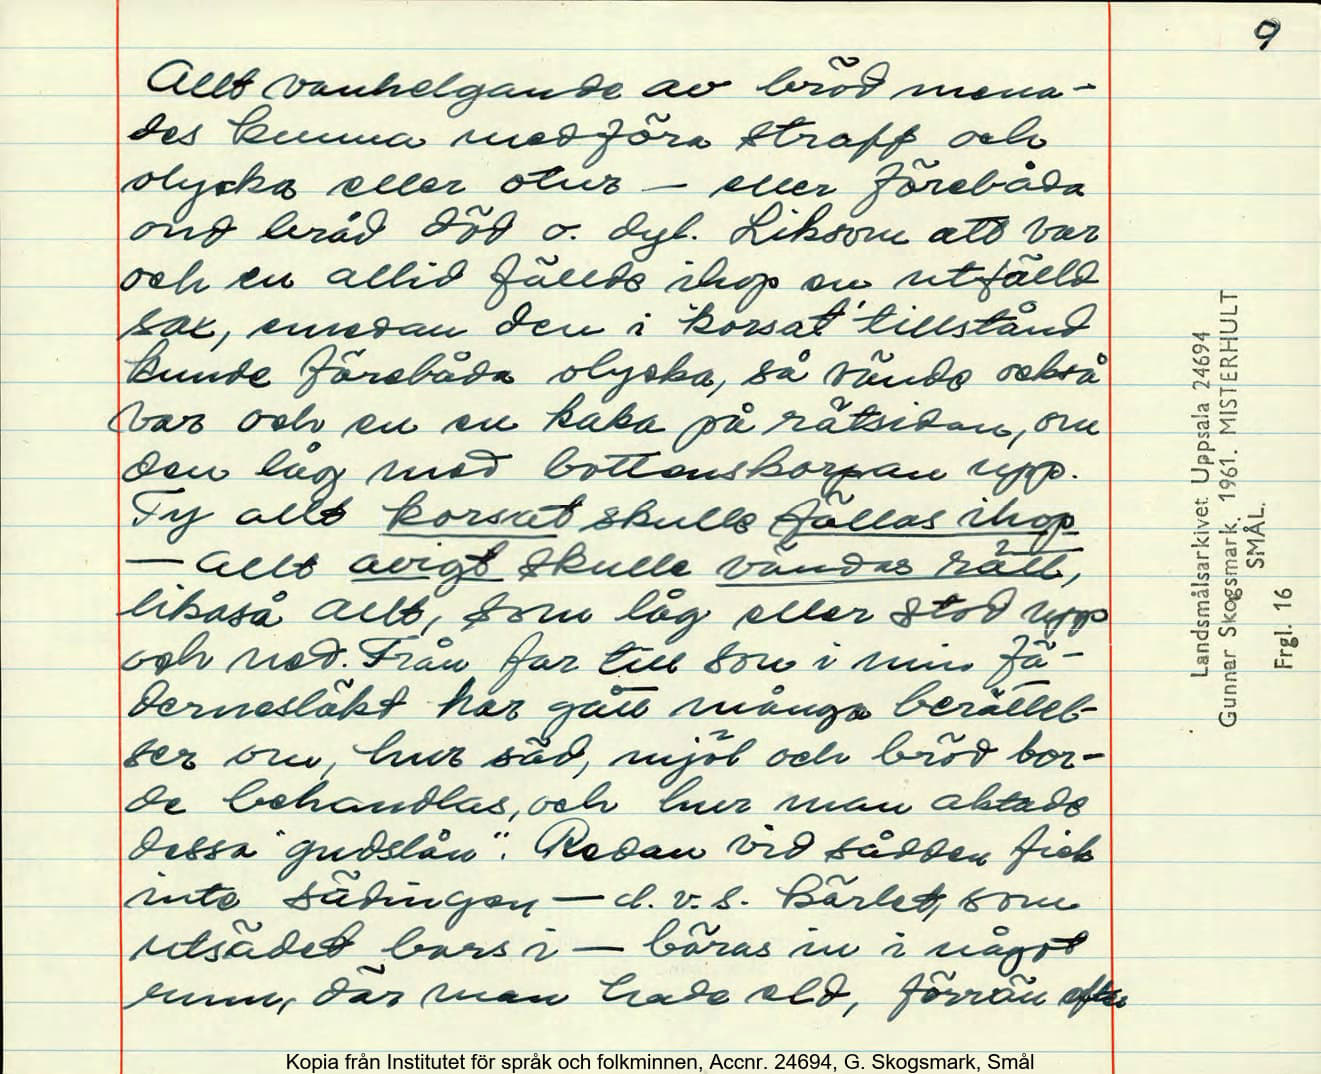 9
Allt vanhelgande av bröd mena-
des kunna medföra straff och
olycka eller otur — eller förebåda
ond bråd död o. dyl. Liksom att var
och en allid fällde ihop en utfälld
sax, emedan den i "korsat" tillstånd
kunde förebåda olycka, så vände också
var och en en kaka på rätsidan, om
den låg med bottenskorpan upp.
Ty allt korsat skulle fällas ihop
— allt avigt skulle vändas rätt,
likaså allt, som låg eller stod upp
och ned. Från far till son i min fä-
dernesläkt har gått många berättel-
ser om, hur säd, mjöl och bröd bor-
de behandlas, och hur man aktade
dessa "gudslån". Redan vid sådden fick
inte sädingen — d.v.s. kärlet, som
utsädet bars i — bäras in i något
rum, där man hade eld, förrän efter
Landsmålsarkivet Uppsala 24694
Gunnar Skogsmark. 1961. MISTERHULT
SMÅL.
Frgl. 16
Kopia från Institutet för språk och folkminnen, Accnr. 24694, G. Skogsmark, Smål